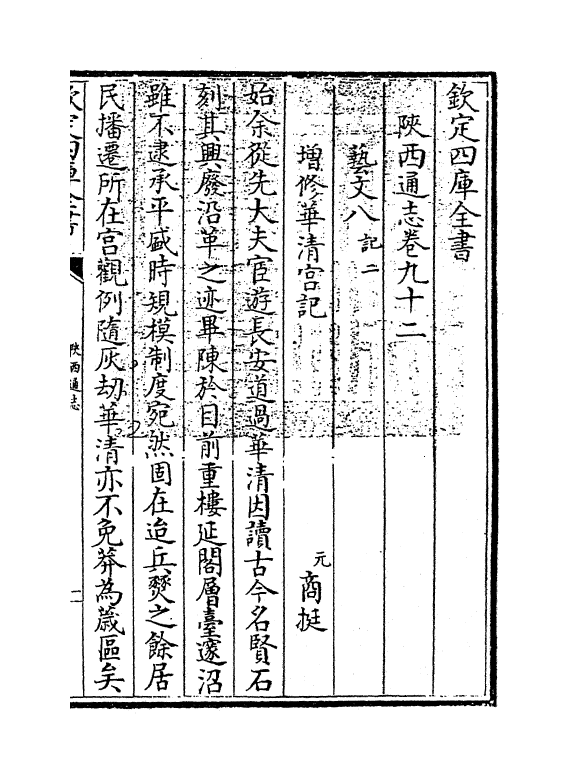 欽定四庫全書
陜西通志卷九十二
藝文八 記二
增修華清宮記
元 商挺
始余從先大夫宦遊長安道過華清因讀古今名賢石
刻其興廢沿革之迹畢陳於目前重樓延閣層臺邃沼
雖不逮承平盛時規模制度宛然固在迨兵燹之餘居
民播遷所在宮觀例隨灰刼華清亦不免莽為薉區矣
欽定四庫全書
陜西通志